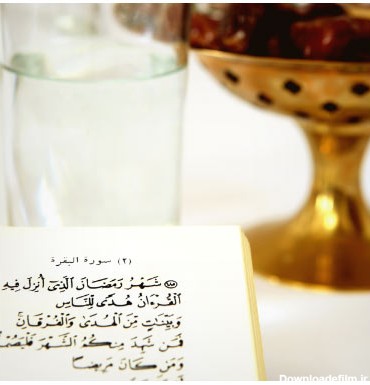 (٢) سورة البقرة
۝ شَهْرُ رَمَضَانَ ٱلَّذِىٓ أُنزِلَ فِيهِ
ٱلْقُرْءَانُ هُدًى لِّلنَّاسِ
وَبَيِّنَٰتٍ مِّنَ ٱلْهُدَىٰ وَٱلْفُرْقَانِ
فَمَن شَهِدَ مِنكُمُ ٱلشَّهْرَ فَلْيَصُمْهُ
وَمَن كَانَ مَرِيضًا
Downloadefilm.ir